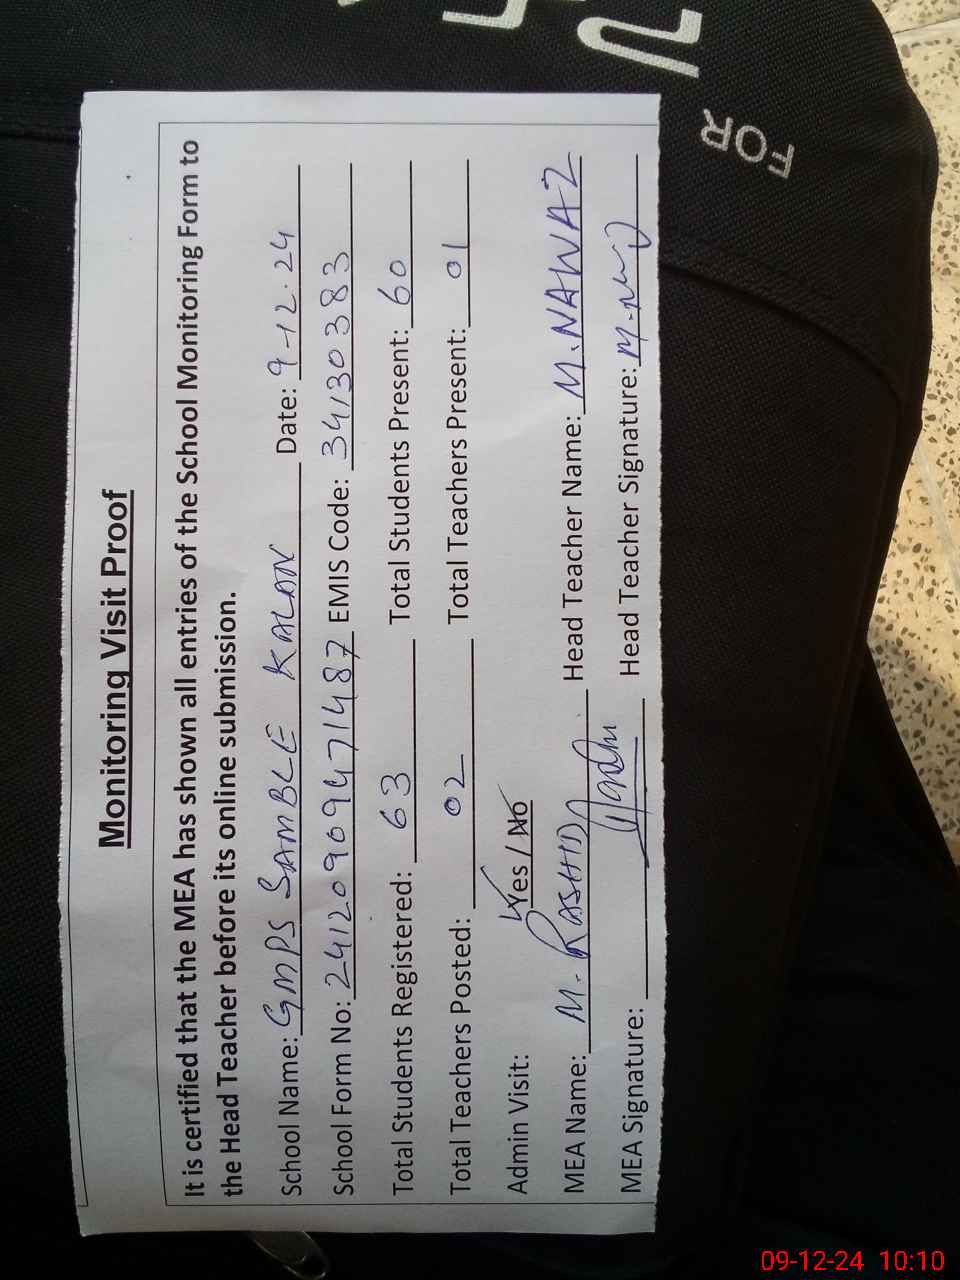 Monitoring Visit Proof
It is certified that the MEA has shown all entries of the School Monitoring Form to
the Head Teacher before its online submission.
School Name: GMPS SAMBLE KALAN Date: 9-12.24
School Form No: 24120909471487 EMIS Code: 34130383
Total Students Registered: 63 Total Students Present: 60
Total Teachers Posted: 02 Total Teachers Present: 01
Admin Visit: Yes / No
MEA Name: M. RASHID Head Teacher Name: M. NAWAZ
MEA Signature: Head Teacher Signature:
FOR
09-12-24 10:10